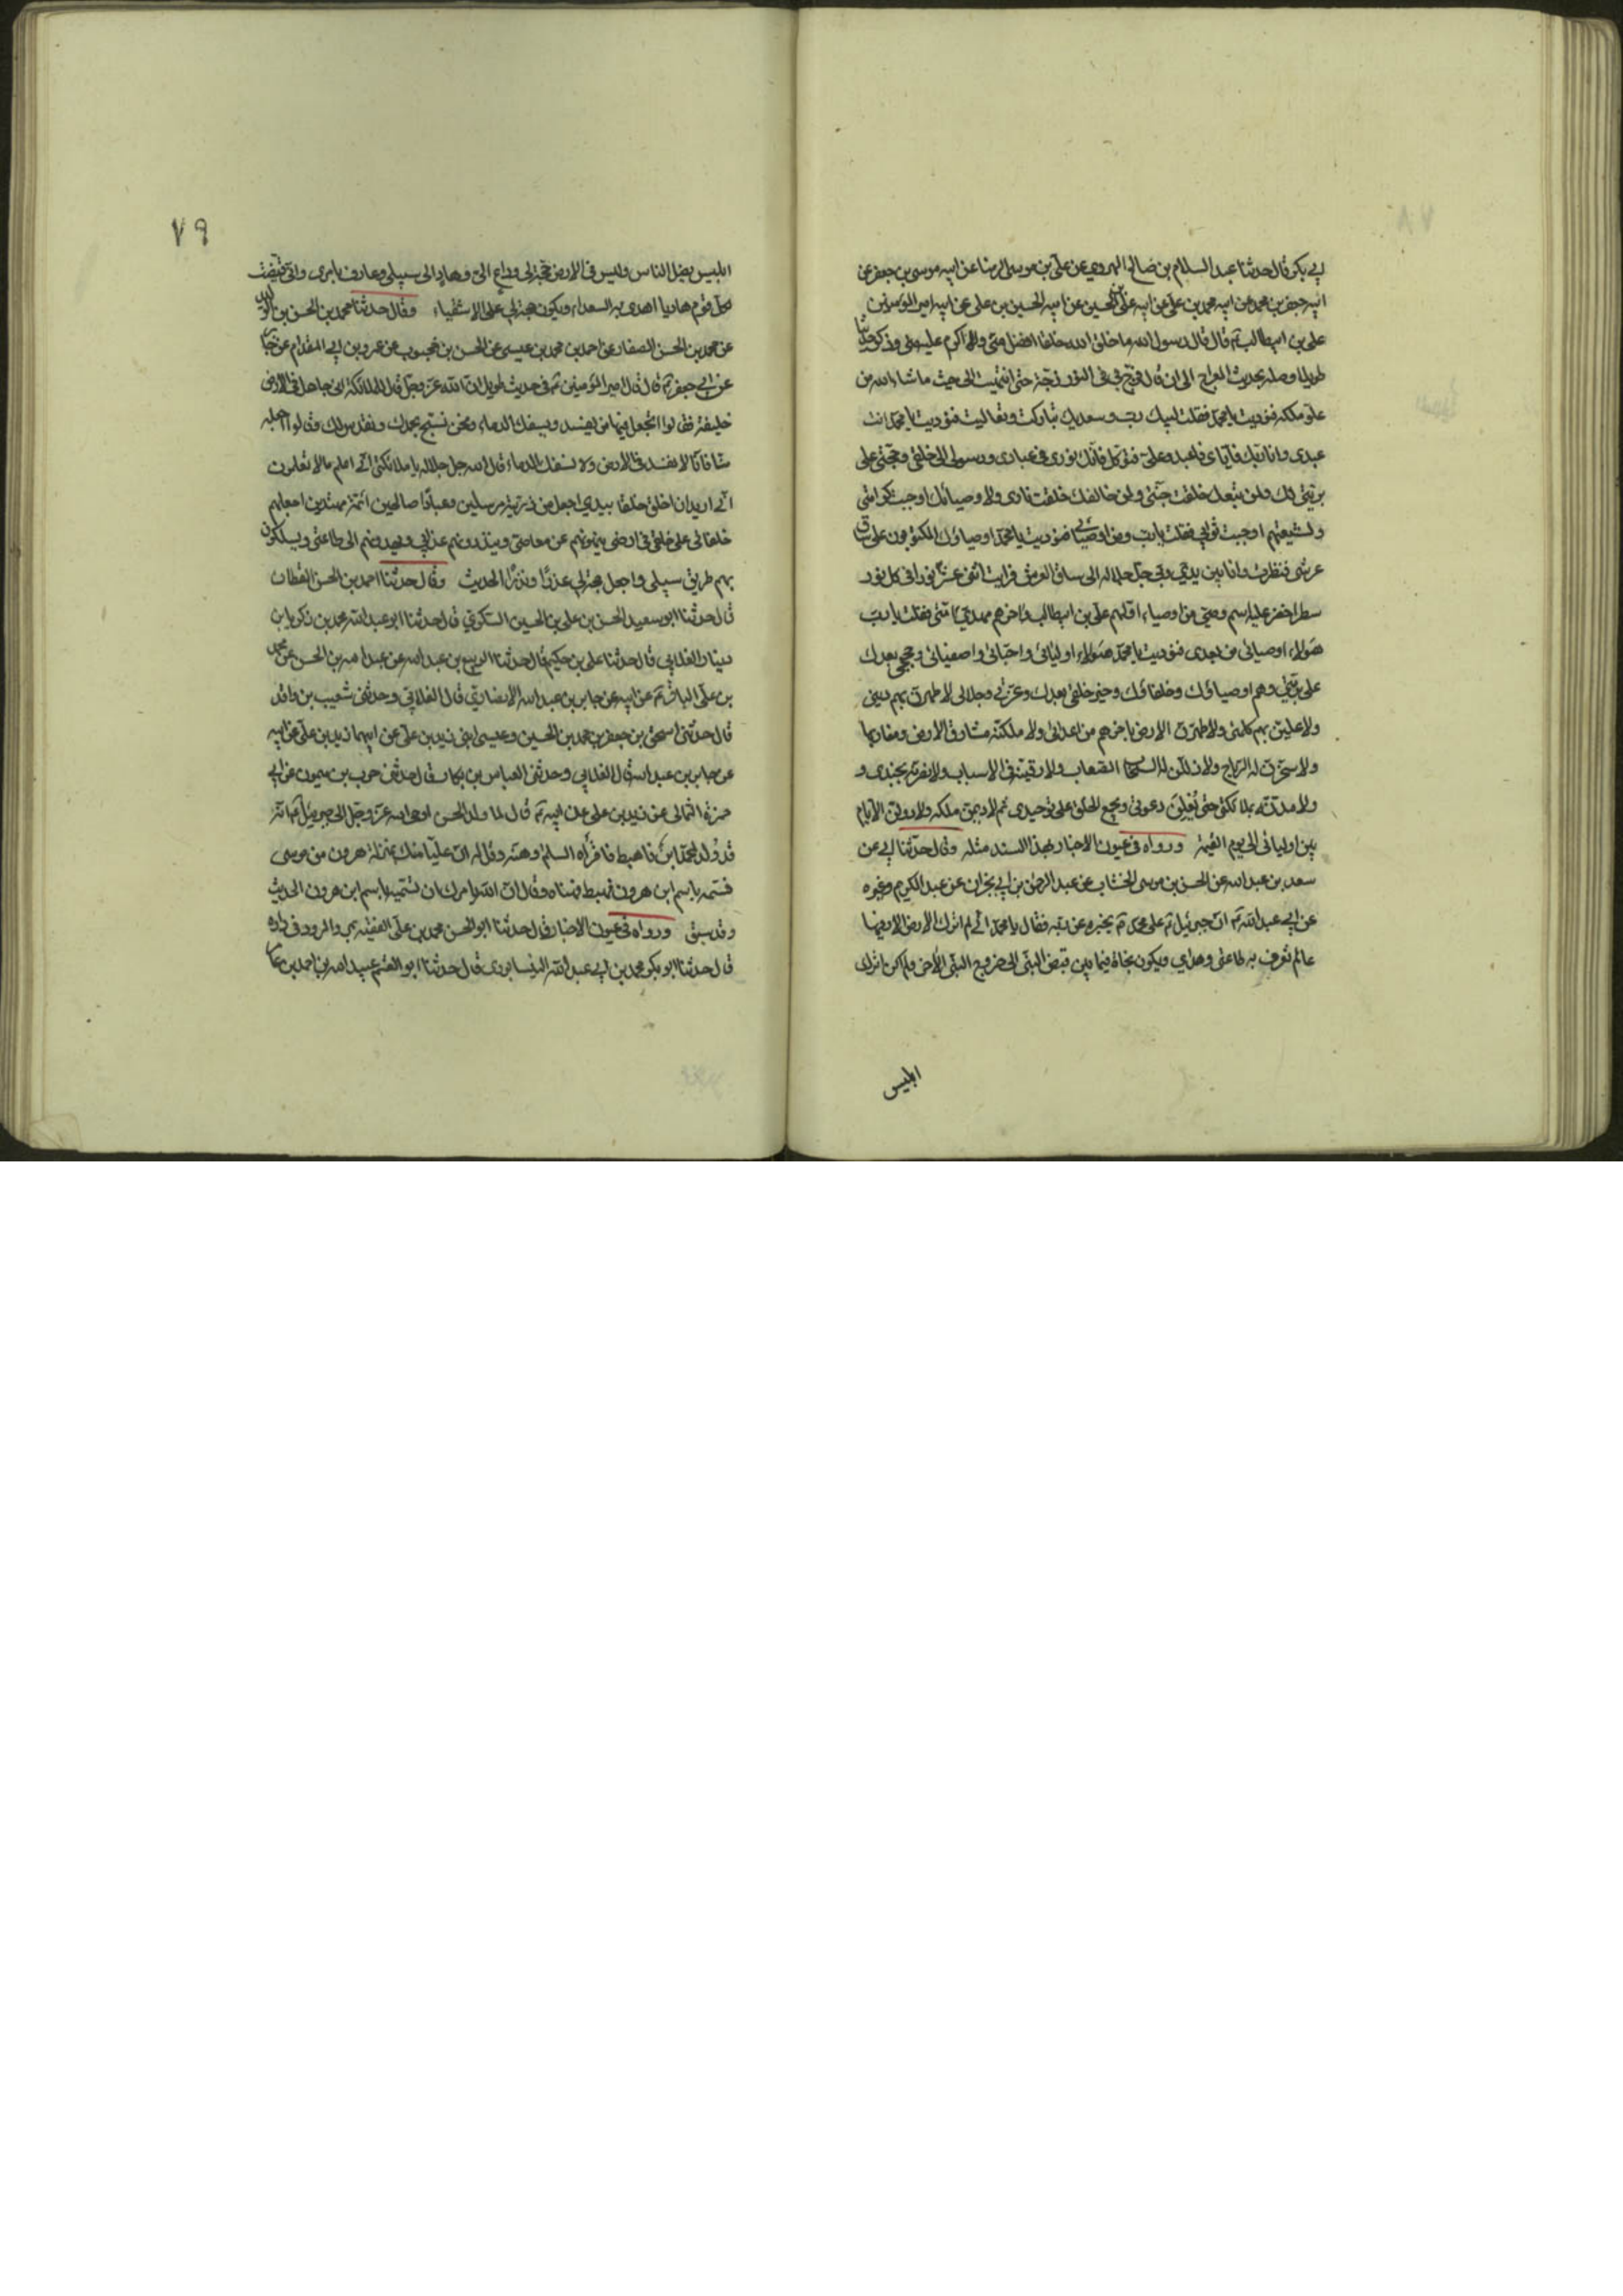 ابي بكر قال حدثنا عبد السلام بن صالح الهروي عن علي بن موسى الرضا عن ابيه موسى بن جعفر عن
ابيه جعفر بن محمد عن ابيه محمد بن علي عن ابيه علي بن الحسين عن ابيه الحسين بن علي عن ابيه امير المؤمنين
علي بن ابيطالب ع قال قال رسول الله ما خلق الله خلقا افضل مني ولا اكرم عليه مني وذكر حديثا
طويلا وصله بحديث المعراج الى ان قال فزج بي في النور زجة حتى انتهيت الى حيث ما شاء الله من
علو ملكه فنوديت يا محمد فقلت لبيك رب وسعديك تباركت وتعاليت فنوديت يا محمد انت
عبدي وانا ربك فاياي فاعبد وعلي فتوكل فانك نوري في عبادي ورسولي الى خلقي وحجتي على
بريتي لك ولمن تبعك خلقت جنتي ولمن خالفك خلقت ناري ولاوصيائك اوجبت كرامتي
ولشيعتهم اوجبت ثوابي فقلت يا رب ومن اوصيائي فنوديت يا محمد اوصياؤك المكتوبون على ساق
عرشي فنظرت وانا بين يدي ربي جل جلاله الى ساق العرش فرايت اثنى عشر نورا في كل نور
سطر اخضر عليه اسم وصي من اوصيائي اولهم علي بن ابيطالب واخرهم مهدي امتي فقلت يا رب
هؤلاء اوصيائي من بعدي فنوديت يا محمد هؤلاء اوليائي واحبائي واصفيائي وحججي بعدك
على بريتي وهم اوصياؤك وخلفاؤك وخير خلقي بعدك وعزتي وجلالي لاظهرن بهم ديني
ولاعلين بهم كلمتي ولاطهرن الارض باخرهم من اعدائي ولاملكنه مشارق الارض ومغاربها
ولاسخرن له الرياح ولاذللن له السحاب الصعاب ولارقينه في الاسباب ولانصرنه بجندي و
ولامدنه بملائكتي حتى تعلن دعوتي ويجمع الخلق على توحيدي ثم لاديمن ملكه ولاداولن الايام
بين اوليائي الى يوم القيمة ورواه في عيون الاخبار بهذا السند مثله وقال حدثنا ابي عن
سعد بن عبد الله عن الحسن بن موسى الخشاب عن عبد الرحمن بن ابي نجران عن عبد الكريم وغيره
عن ابي عبد الله ع ان جبرئيل ع على محمد ص يخبره عن ربه فقال يا محمد اني لم اترك الارض الا وفيها
عالم تعرف به طاعتي وهداي ويكون نجاة فيما بين قبض النبي الى خروج النبي الاخر ولم اكن اترك
ابليس
٧٩
ابليس يضل الناس وليس في الارض حجة لي وداع الي وهاد الى سبيلي وعارف بامري واني قيضت
لكل قوم هاديا اهدي به السعداء ويكون حجة لي على الاشقياء وقال حدثنا محمد بن الحسن بن الوليد
عن محمد بن الحسن الصفار عن احمد بن محمد بن عيسى عن الحسن بن محبوب عن عمرو بن ابي المقدام عن جابر
عن ابي جعفر ع قال قال امير المؤمنين ع في حديث طويل ان الله عز وجل قال للملائكة اني جاعل في الارض
خليفة فقالوا اتجعل فيها من يفسد فيها ويسفك الدماء ونحن نسبح بحمدك ونقدس لك وقالوا اجعله
منا فانا لا نفسد في الارض ولا نسفك الدماء قال الله جل جلاله يا ملائكتي اني اعلم ما لا تعلمون
اني اريد ان اخلق خلقا بيدي اجعل من ذريته مرسلين وعبادا صالحين ائمة مهتدين اجعلهم
خلفائي على خلقي في ارضي ينهونهم عن معاصي وينذرونهم عذابي ويهدونهم الى طاعتي ويسلكون
بهم طريق سبيلي واجعل حجة لي عذرا ونذرا الحديث وقال حدثنا احمد بن الحسن القطان
قال حدثنا ابو سعيد الحسن بن علي بن الحسين السكري قال حدثنا ابو عبد الله محمد بن زكريا بن
دينار الغلابي قال حدثنا علي بن حكيم قال حدثنا الربيع بن عبد الله عن عبد الله بن الحسن عن محمد
بن علي الباقر ع عن ابيه عن جابر بن عبد الله الانصاري قال الغلابي وحدثني شعيب بن واقد
قال حدثني اسحق بن جعفر بن محمد بن الحسين وعيسى ابني زيد بن علي عن ابيهما زيد بن علي عن ابيه
عن جابر بن عبد الله قال الغلابي وحدثني العباس بن بكار قال حدثني حرب بن ميمون عن ابي
حمزة الثمالي عن زيد بن علي عن ابيه ع قال لما ولد الحسن اوحى الله عز وجل الى جبرئيل انه
قد ولد لمحمد ابن فاهبط فاقرأه السلم وهنه وقل له ان عليا منك بمنزلة هرون من موسى
فسمه باسم ابن هرون فهبط فهناه وقال ان الله يامرك ان تسميه باسم ابن هرون الحديث
وقد سبق ورواه في عيون الاخبار قال حدثنا ابو الحسن محمد بن علي الفقيه بمرو الرود في داره
قال حدثنا ابو بكر محمد بن ابي عبد الله النيسابوري قال حدثنا ابو القسم عبد الله بن احمد بن عامر